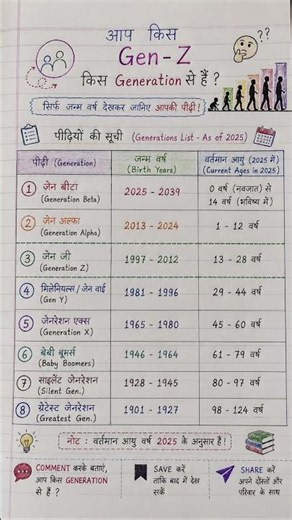 आप किस
??
Gen-Z
किस Generation से हैं ?
सिर्फ जन्म वर्ष देखकर जानिए आपकी पीढ़ी!
पीढ़ियों की सूची (Generations List - As of 2025)
पीढ़ी (Generation) जन्म वर्ष (Birth Years) वर्तमान आयु (2025 में) (Current Ages in 2025)
1 जेन बीटा (Generation Beta) 2025 - 2039 0 वर्ष (नवजात) से 14 वर्ष (भविष्य में)
2 जेन अल्फा (Generation Alpha) 2013 - 2024 1 - 12 वर्ष
3 जेन जी (Generation Z) 1997 - 2012 13 - 28 वर्ष
4 मिलेनियल्स / जेन वाई (Gen Y) 1981 - 1996 29 - 44 वर्ष
5 जेनरेशन एक्स (Generation X) 1965 - 1980 45 - 60 वर्ष
6 बेबी बूमर्स (Baby Boomers) 1946 - 1964 61 - 79 वर्ष
7 साइलेंट जेनरेशन (Silent Gen.) 1928 - 1945 80 - 97 वर्ष
8 ग्रेटेस्ट जेनरेशन (Greatest Gen.) 1901 - 1927 98 - 124 वर्ष
नोट : वर्तमान आयु वर्ष 2025 के अनुसार हैं!
COMMENT करके बताएं,
आप किस GENERATION
से हैं ?
SAVE करें
ताकि बाद में देख
सकें
SHARE करें
अपने दोस्तों और
परिवार के साथ